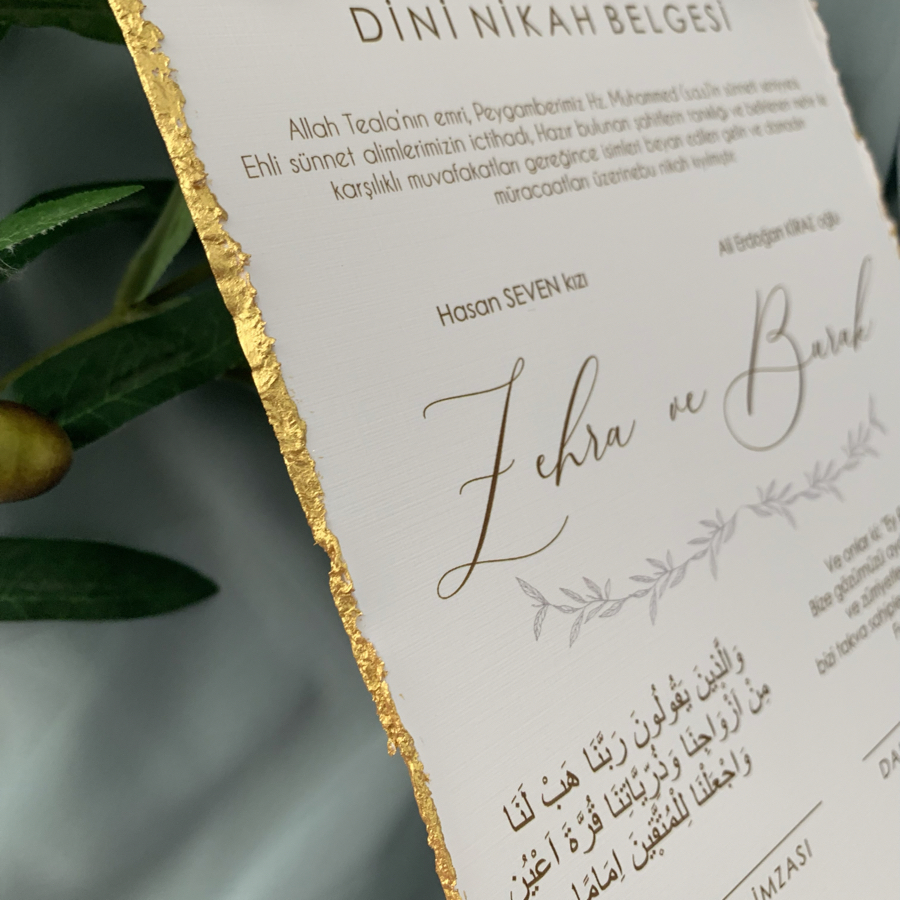 DİNİ NİKAH BELGESİ
Allah Teala'nın emri, Peygamberimiz Hz. Muhammed (s.a.s)'in sünneti seniyyesi,
Ehli sünnet alimlerimizin ictihadı, Hazır bulunan şahitlerin tanıklığı ve belirlenen mehir ile
karşılıklı muvafakatları gereğince isimleri beyan edilen gelin ve damadın
müracaatları üzerinebu nikah kıyılmıştır.
Hasan SEVEN kızı
Ali Erdoğan KİRAZ oğlu
Zehra ve Burak
وَالَّذٖينَ يَقُولُونَ رَبَّنَا هَبْ لَنَا
مِنْ اَزْوَاجِنَا وَذُرِّيَّاتِنَا قُرَّةَ اَعْيُنٍ
وَاجْعَلْنَا لِلْمُتَّقٖينَ اِمَامًا
Ve onlar ki: "Ey
Bize gözümüzü ay
ve zürriyetle
bizi takva sahiple
İMZASI
DA